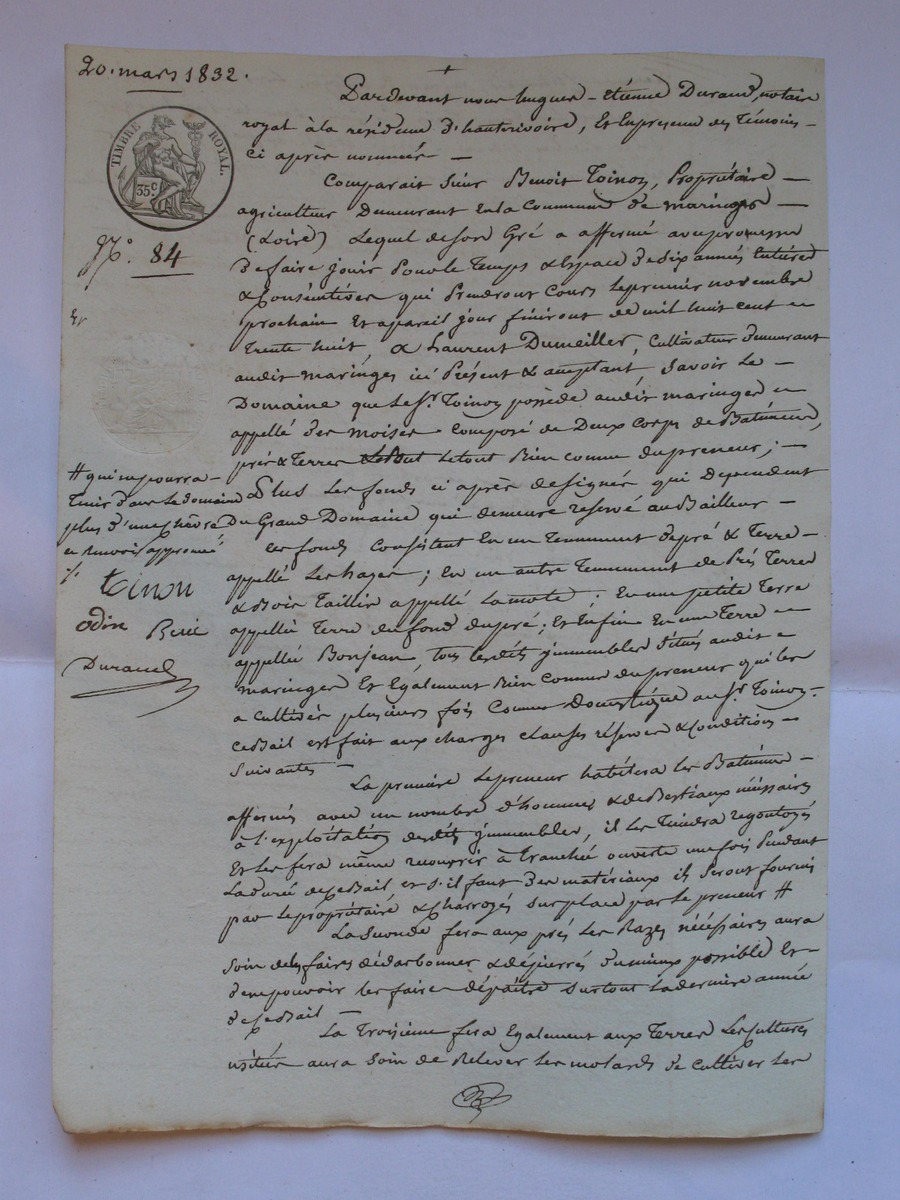 20. mars 1832.
TIMBRE ROYAL.
35 c
N°. 84
Pardevant nous hugues - etienne Durand, notaire
royal à la résidence d'hauterivoire, et En presence des Témoins -
ci après nommés -
Comparait Sieur Benoit Toinon, Propriétaire -
agriculteur Demeurant En la Commune de maringes -
(Loire) Lequel de son Gré a affermé avec promesse
De faire jouir Pour le Temps & Espace de six années Entières
& Consécutives qui Prendront Cours le premier novembre
prochain Et à pareil jour finiront de mil huit cent -
trente huit, à Laurent Dumeiller, Cultivateur demeurant
audit maringes ici Présent & acceptant Savoir Le -
Domaine que le Sr. Toinon possède audit maringes -
appellé des moises Composé de Deux Corps de Batiments,
prés & Terres Le tout Bien connu du preneur; -
Plus Les fonds ci après designés qui Dependent
Du Grand Domaine qui demeure reservé au Bailleur -
Ces fonds Consistent En un Tennement de pré & Terre -
appellé Les hayes; En un autre Tennement de Prés Terres
& Bois Taillis appellé La mote; En une petite Terre
appellée Terre du fond du pré; Et Enfin En une Terre -
appellée Bonjean, Tous lesdits jmmeubles situés audit -
maringes Et Egalement Bien connus du preneur qui les
a cultivés plusieurs fois Comme Domestique au Sr. Toinon.
Ce Bail est fait aux charges clauses réserves & Conditions -
Suivantes -
La première Le preneur habitera Les Batiments -
affermés avec un nombre d'hommes & de Bestiaux nécessaires
à l'exploitation desdits jmmeubles, il Les Tiendra regoutoyés
Et Les fera même recouvrir à Tranchée ouverte une fois Pendant
La durée de ce Bail, et s'il faut Des matériaux ils Seront fournis
par le propriétaire & Charroyés Sur place par Le preneur #
La Seconde fera aux prés Les Razes nécéssaires aura
Soin de les faires dédarbonner & dépierrés du mieux possible Et -
d'en pouvoir les faire dépaitre Surtout La dernière année
de ce Bail -
La Troisième fera Egalement aux Terres Les cultures
usitées aura Soin de Relever Les molards De cultiver Les
# qui ne pourra -
Tenir dans Le domaine
plus d'une chèvre
en renvoi approuvé
toinon
odin
Durand